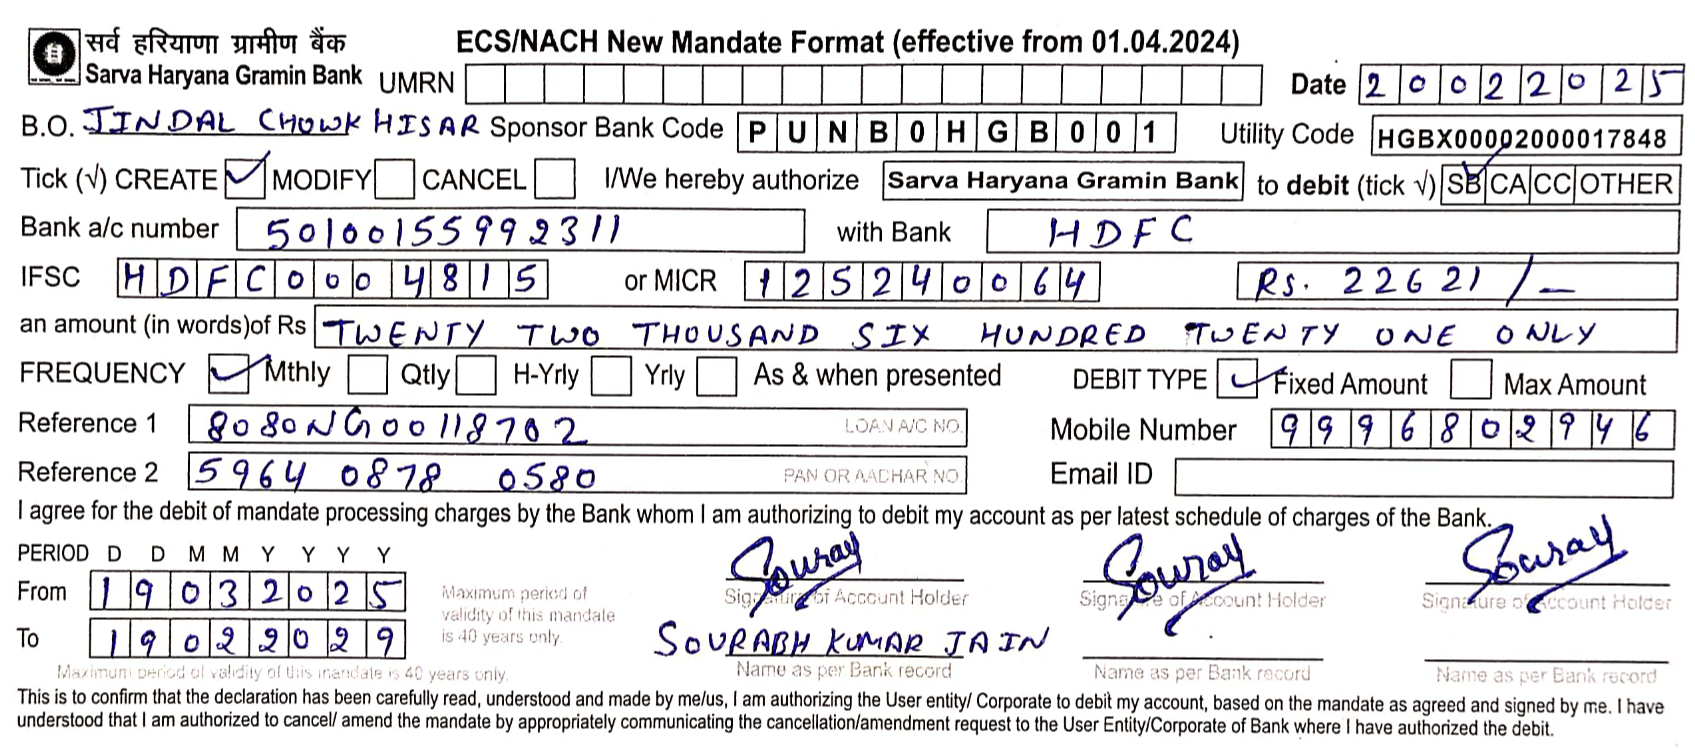 सर्व हरियाणा ग्रामीण बैंक
Sarva Haryana Gramin Bank
ECS/NACH New Mandate Format (effective from 01.04.2024)
UMRN Date 20022025
B.O. JINDAL CHOWK HISAR Sponsor Bank Code PUNB0HGB001 Utility Code HGBX00002000017848
Tick (√) CREATE MODIFY CANCEL I/We hereby authorize Sarva Haryana Gramin Bank to debit (tick √) SB CA CC OTHER
Bank a/c number 50100155992311 with Bank HDFC
IFSC HDFC0004815 or MICR 125240064 Rs. 22621/-
an amount (in words)of Rs TWENTY TWO THOUSAND SIX HUNDRED TWENTY ONE ONLY
FREQUENCY Mthly Qtly H-Yrly Yrly As & when presented DEBIT TYPE Fixed Amount Max Amount
Reference 1 8080NG00118702 LOAN A/C NO. Mobile Number 9996802946
Reference 2 5964 0878 0580 PAN OR AADHAR NO. Email ID
I agree for the debit of mandate processing charges by the Bank whom I am authorizing to debit my account as per latest schedule of charges of the Bank.
PERIOD D D M M Y Y Y Y
From 19032025
To 19022029
Maximum period of
validity of this mandate
is 40 years only.
Maximum period of validity of this mandate is 40 years only.
Sourav Sourav Sourav
Signature of Account Holder Signature of Account Holder Signature of Account Holder
SOURABH KUMAR JAIN
Name as per Bank record Name as per Bank record Name as per Bank record
This is to confirm that the declaration has been carefully read, understood and made by me/us, I am authorizing the User entity/ Corporate to debit my account, based on the mandate as agreed and signed by me. I have
understood that I am authorized to cancel/ amend the mandate by appropriately communicating the cancellation/amendment request to the User Entity/Corporate of Bank where I have authorized the debit.